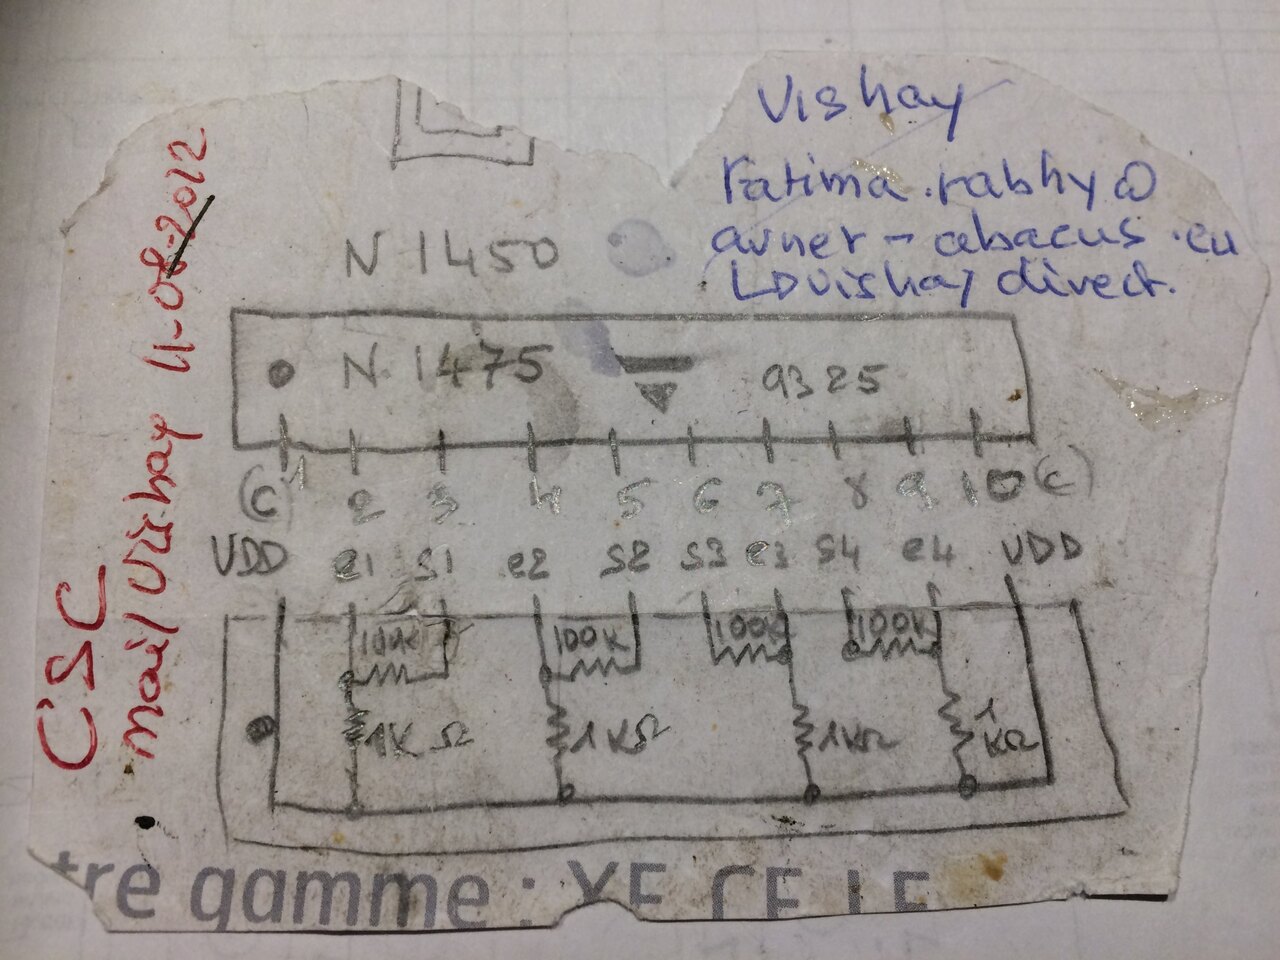 Vishay
Fatima.rabhy@
avnet-abacus.eu
↳vishay direct.
N 1450
N. 1475 9325
(C) 1 2 3 4 5 6 7 8 9 10 (C)
VDD e1 S1 e2 S2 S3 e3 S4 e4 VDD
100K 100K 100K 100K
1KΩ 1KΩ 1KΩ 1KΩ
CSC
mail Vishay 11-08-2022
tre gamme :